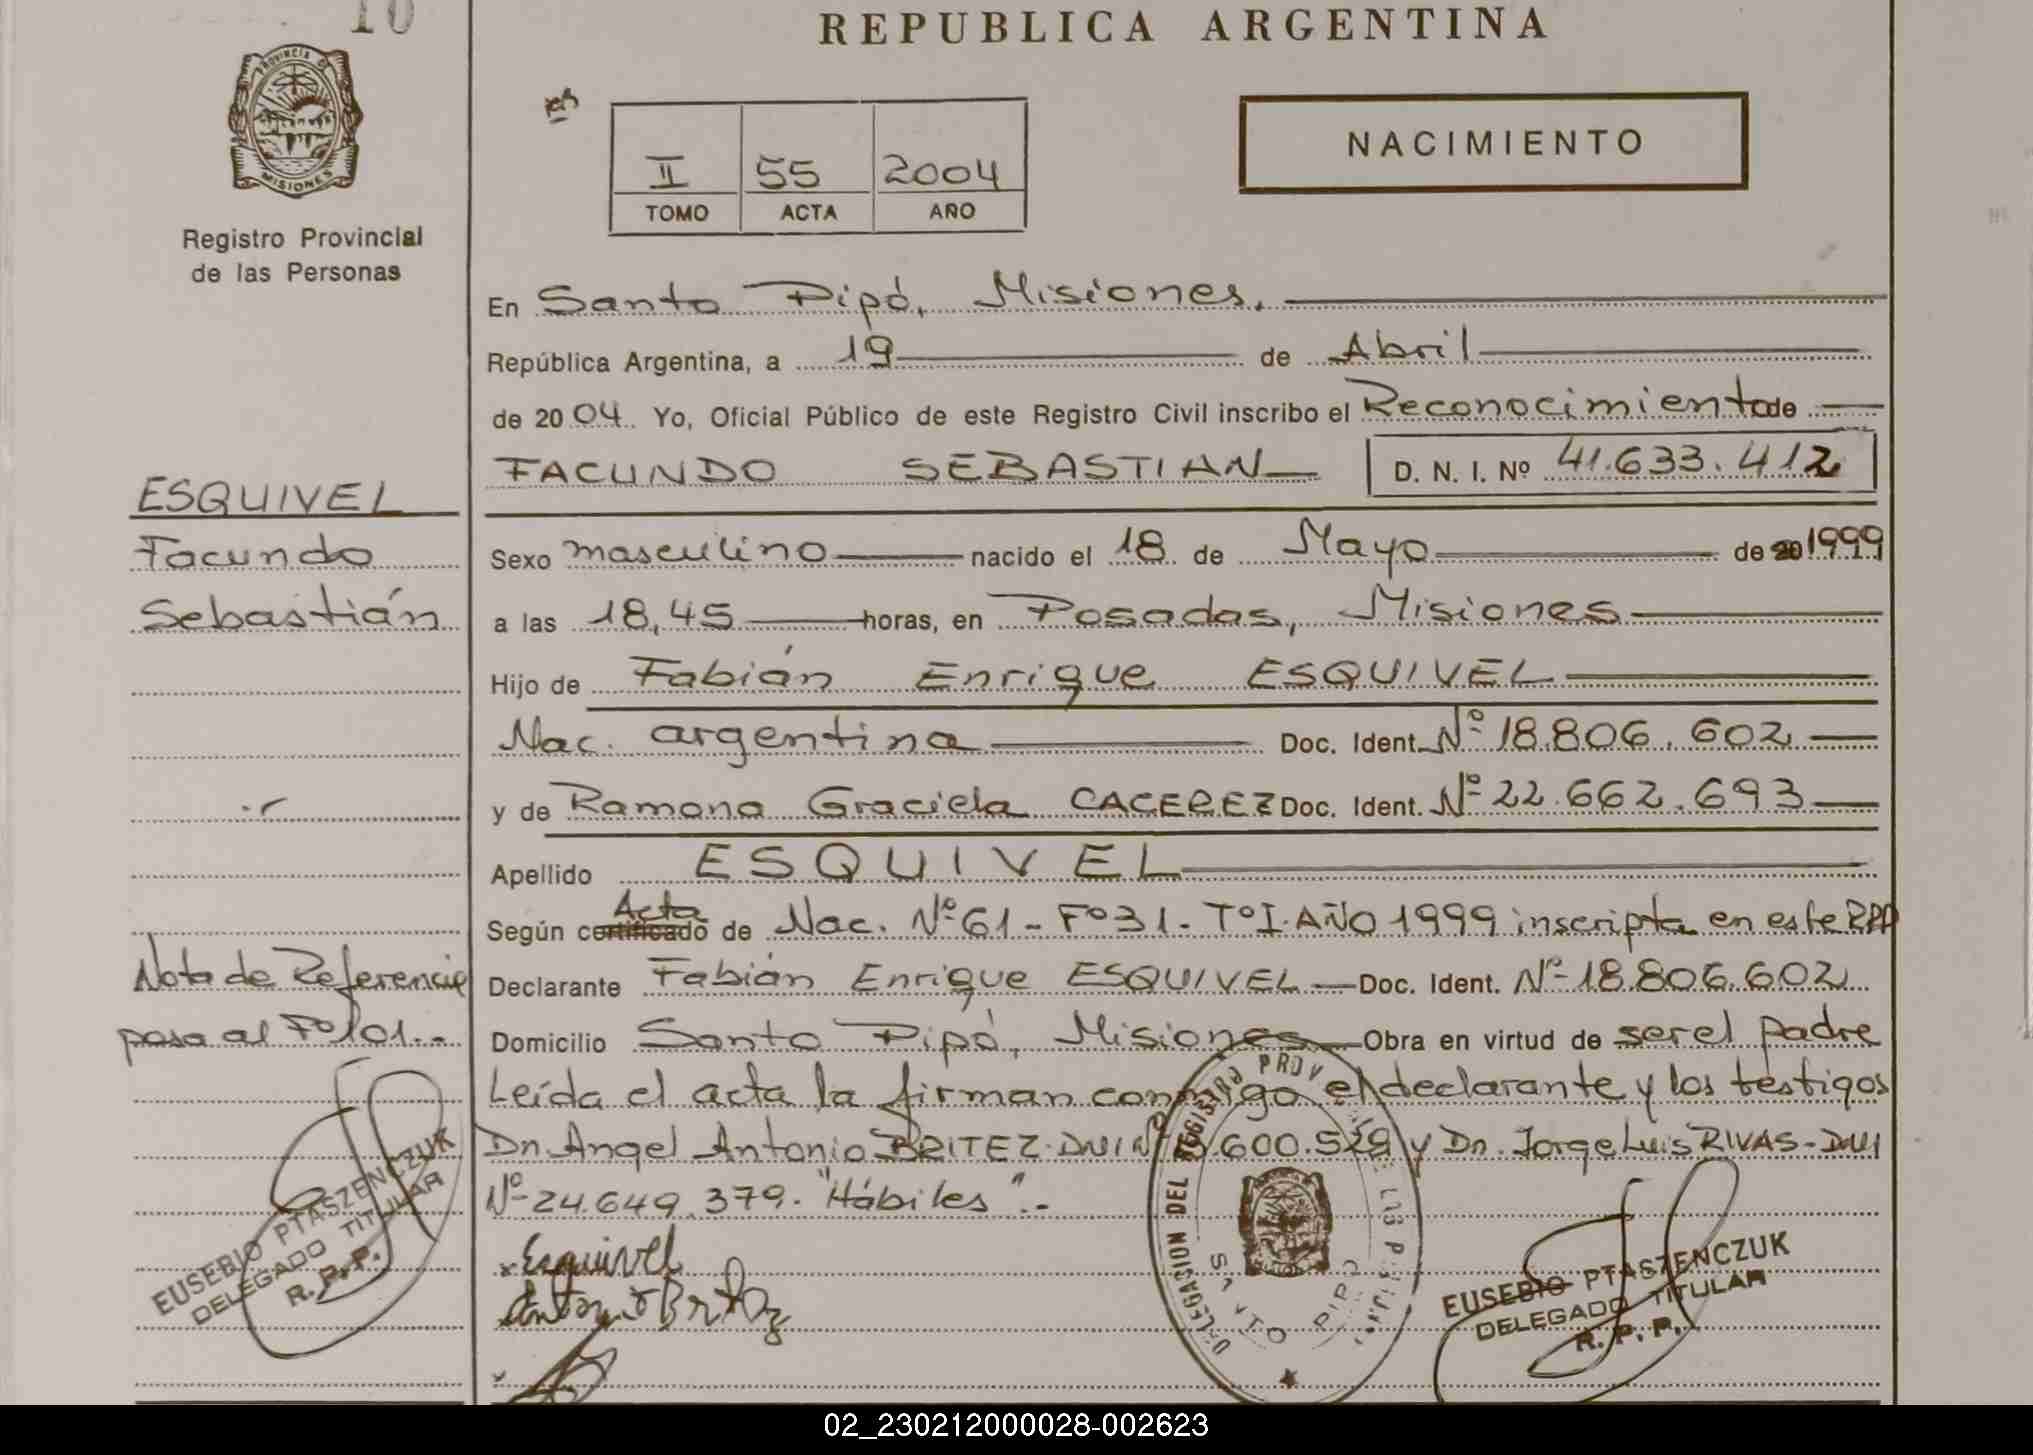 10
REPUBLICA ARGENTINA
PROVINCIA DE
MISIONES
Registro Provincial
de las Personas
NACIMIENTO
II 55 2004
TOMO ACTA AÑO
En Santo Pipó, Misiones.
República Argentina, a 19 de Abril
de 2004. Yo, Oficial Público de este Registro Civil inscribo el Reconocimiento de
FACUNDO SEBASTIAN D. N. I. Nº 41.633.412
ESQUIVEL
Facundo
Sebastián
Sexo masculino nacido el 18 de Mayo de 20 1999
a las 18,45 horas, en Posadas, Misiones
Hijo de Fabián Enrique ESQUIVEL
Nac. argentina Doc. Ident. Nº 18.806.602
y de Ramona Graciela CACEREZ Doc. Ident. Nº 22.662.693
Apellido ESQUIVEL
Acta
Según certificado de Nac. Nº 61 - Fº 31 - Tº I. AÑO 1999 inscripta en este RPP
Declarante Fabián Enrique ESQUIVEL Doc. Ident. Nº 18.806.602
Domicilio Santo Pipó, Misiones Obra en virtud de ser el padre
Leída el acta la firman conmigo el declarante y los testigos
Dn. Angel Antonio BRITEZ - DNI Nº .600.529 y Dn. Jorge Luis RIVAS - DNI
Nº 24.649.379. "Hábiles".-
Nota de Referencia
pasa al Fº 101.-
EUSEBIO PTASZENCZUK
DELEGADO TITULAR
R. P. P.
Esquivel
DELEGACION DEL REGISTRO PROV
SANTO PIPO
EUSEBIO PTASZENCZUK
DELEGADO TITULAR
R. P. P.
02_230212000028-002623